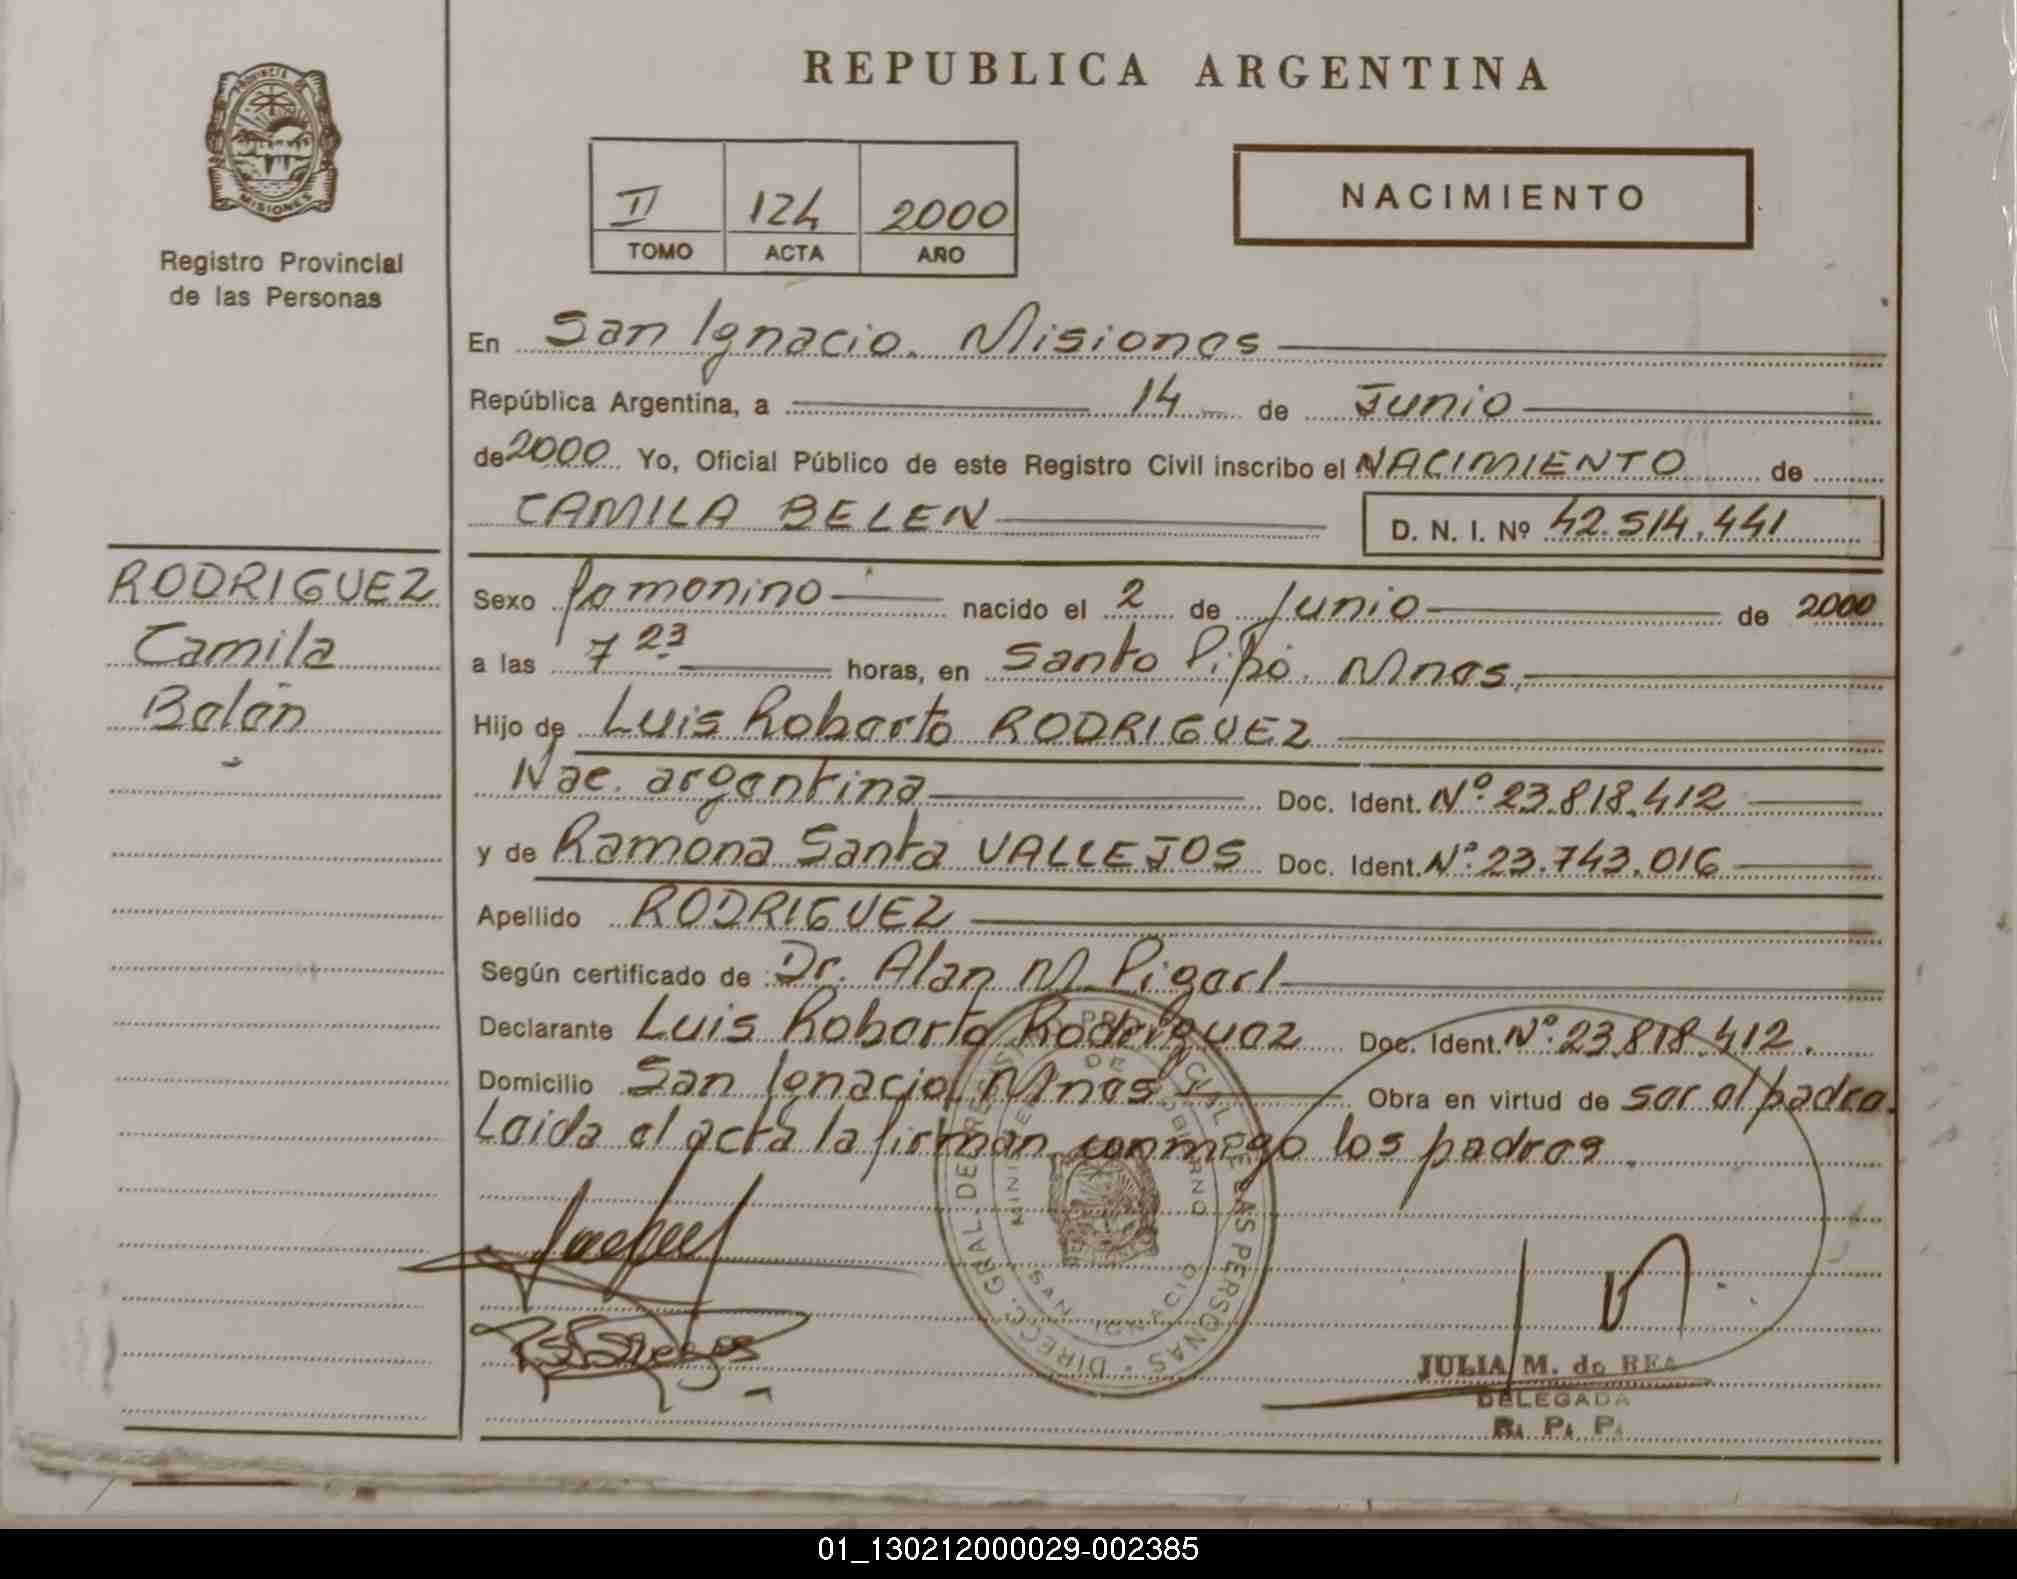 REPUBLICA ARGENTINA
PROVINCIA DE
MISIONES
Registro Provincial
de las Personas
II 124 2000
TOMO ACTA AÑO
NACIMIENTO
En San Ignacio. Misiones
República Argentina, a 14 de Junio
de 2000 Yo, Oficial Público de este Registro Civil inscribo el NACIMIENTO de
CAMILA BELEN D. N. I. Nº 42.514.441
RODRIGUEZ
Camila
Belén
Sexo femenino nacido el 2 de Junio de 2000
a las 7 23 horas, en Santo Pipó. Mnes.
Hijo de Luis Roberto RODRIGUEZ
Nac. argentina Doc. Ident. Nº 23.818.412
y de Ramona Santa VALLEJOS Doc. Ident. Nº 23.743.016
Apellido RODRIGUEZ
Según certificado de Dr. Alan M. Pigerl
Declarante Luis Roberto Rodriguez Doc. Ident. Nº 23.818.412.
Domicilio San Ignacio. Mnes Obra en virtud de ser el padre.
Leida el acta la firman conmigo los padres.
DIRECC. GRAL. DE REGISTRO PROVINCIAL DE LAS PERSONAS
MINISTERIO DE GOBIERNO
SAN IGNACIO
JULIA M. de REA
DELEGADA
R. P. P.
01_130212000029-002385